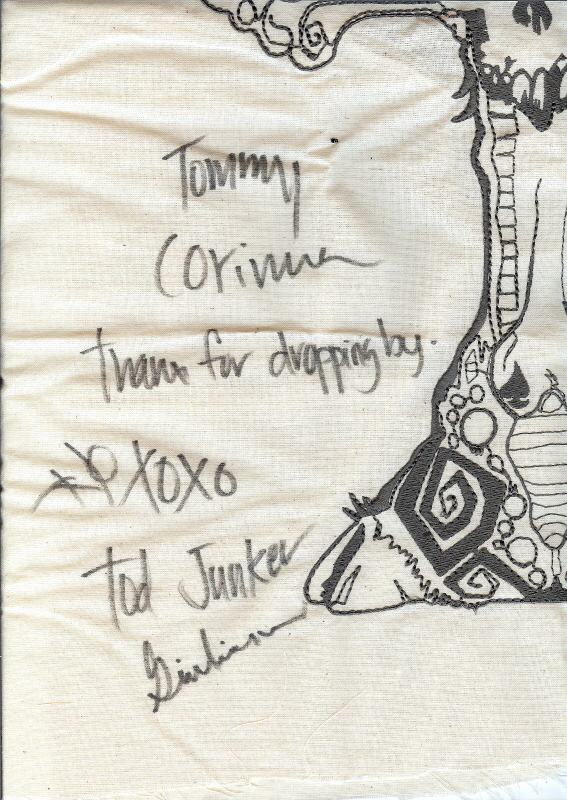 Tommy
Corinna
Thanx for dropping by.
XOXO
Tod Junker